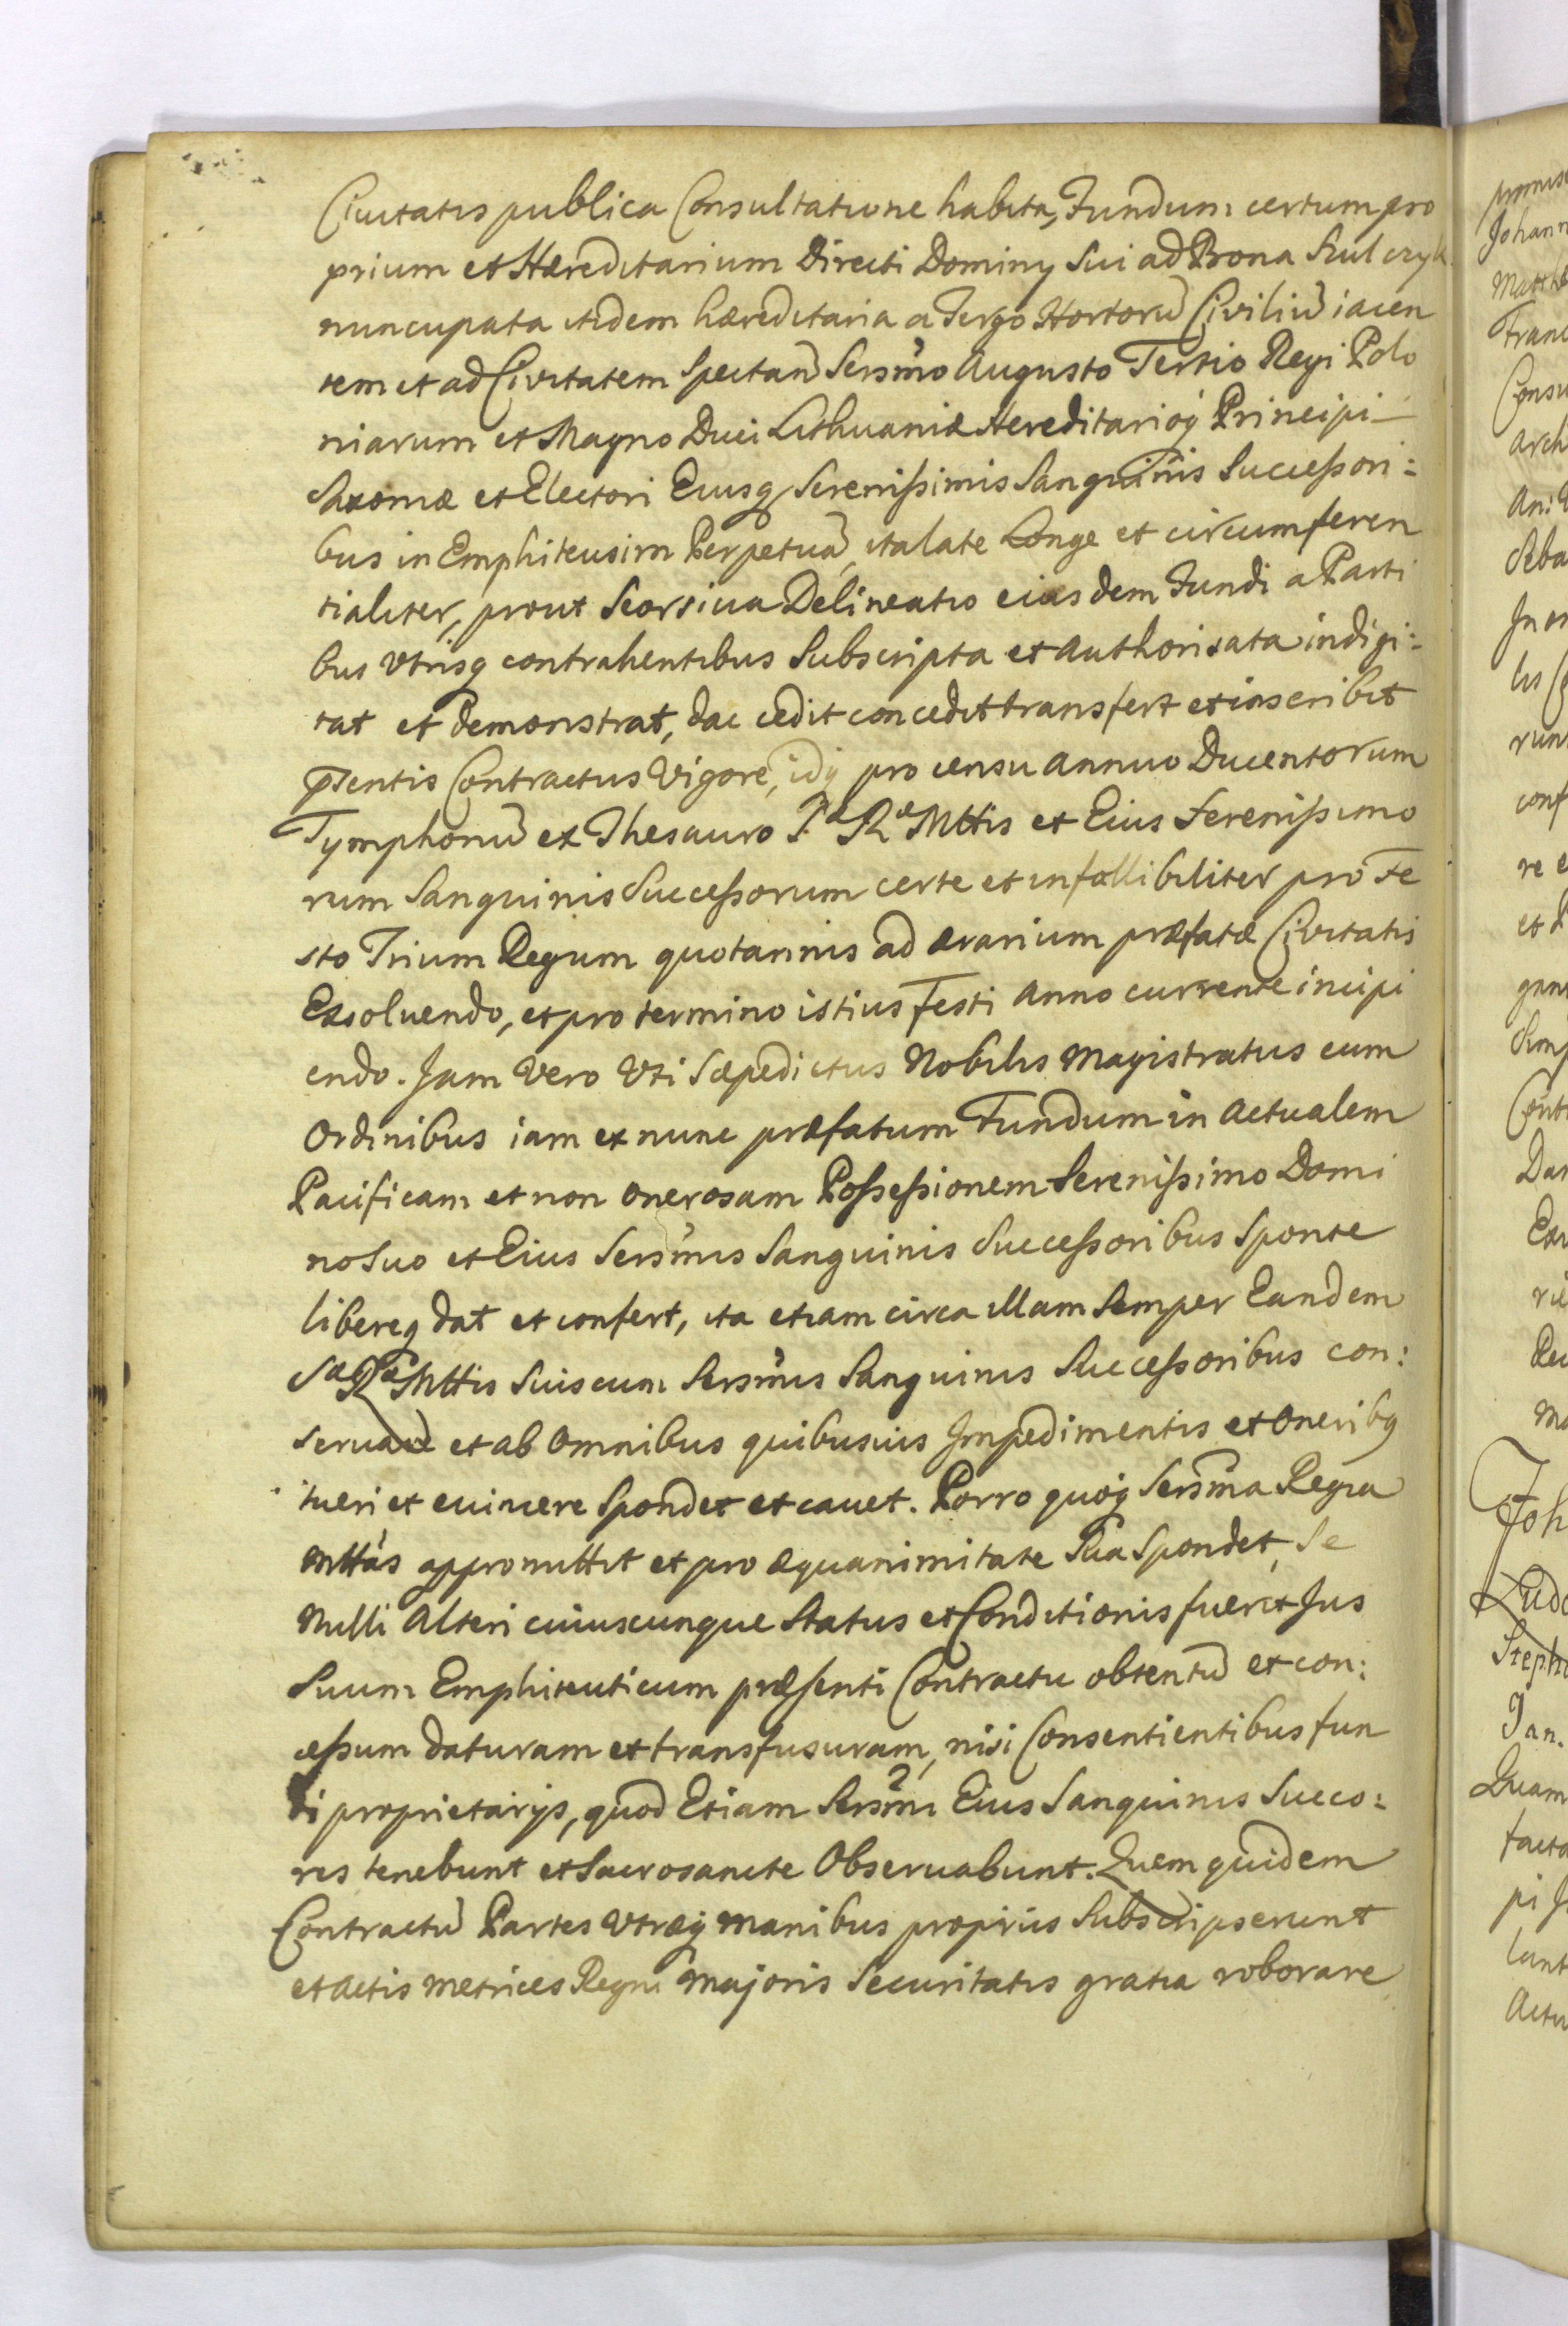 Civitatis publica Consultatione habita, Fundum certum pro
prium et Hæreditarium Directi Dominÿ Sui ad Prona Sulczyk
nuncupata itidem hæreditaria a Tergo Hortorū Civiliū iacen
tem et ad Civitatem Spectan Sersmo Augusto Tertio Regi Polo
niarum et Magno Duci Lithuaniæ Hereditarioq Principi
Saxoniæ et Electori Eiusq Serenißimis Sanguinis Succeßori:
bus in Emphiteusim Perpetuā, ita late Longe et circumferen
tialiter, prout Seorsiva Delineatio eiusdem Fundi a Parti
bus Vtrisq contrahentibus Subscripta et Authorisata indigi:
tat et demonstrat, dat cedit concedit transfert et inscribit
pntis Contractus Vigore, idq pro censu annuo Ducentorum
Tymphonū ex Thesauro S R Mttis et Eius Serenißimo
rum Sanguinis Succeßorum certe et infallibiliter pro Fe
sto Trium Regum quotannis ad ærarium præfatæ Civitatis
Exsoluendo, et pro termino istius Festi Anno currente incipi
endo. Jam Vero Vti Sæpedictus Nobilis Magistratus cum
Ordinibus iam ex nunc præfatum Fundum in actualem
Pacificam et non onerosam Poßeßionem Serenißimo Domi
no Suo et Eius Sersmis Sanguinis Succeßoribus Sponte
libereq dat et confert, ita etiam circa illam Semper Eandem
S R Mttis Suis cum Sersmis Sanguinis Succeßoribus con:
servare et ab Omnibus quibusvis Impedimentis et Oneribq
tueri et evincere Spondet et cauet. Porro quoq Sersma Regia
Mttas appromittit et pro æquanimitate Sua Spondet, Se
Nulli Alteri cuiuscunque Status et Conditionis fuerit Jus
Suum Emphiteuticum præsenti Contractu obtentū et con:
ceßum daturam et transfusuram, nisi Consentientibus fun
di proprietarÿs, quod Etiam Sersmi Eius Sanguinis Succo:
res tenebunt et Sacrosancte Observabunt. Quem quidem
Contractū Partes Vtræq manibus propriis Subscripserunt
et Actis Metrices Regni Majoris Securitatis gratia roborare